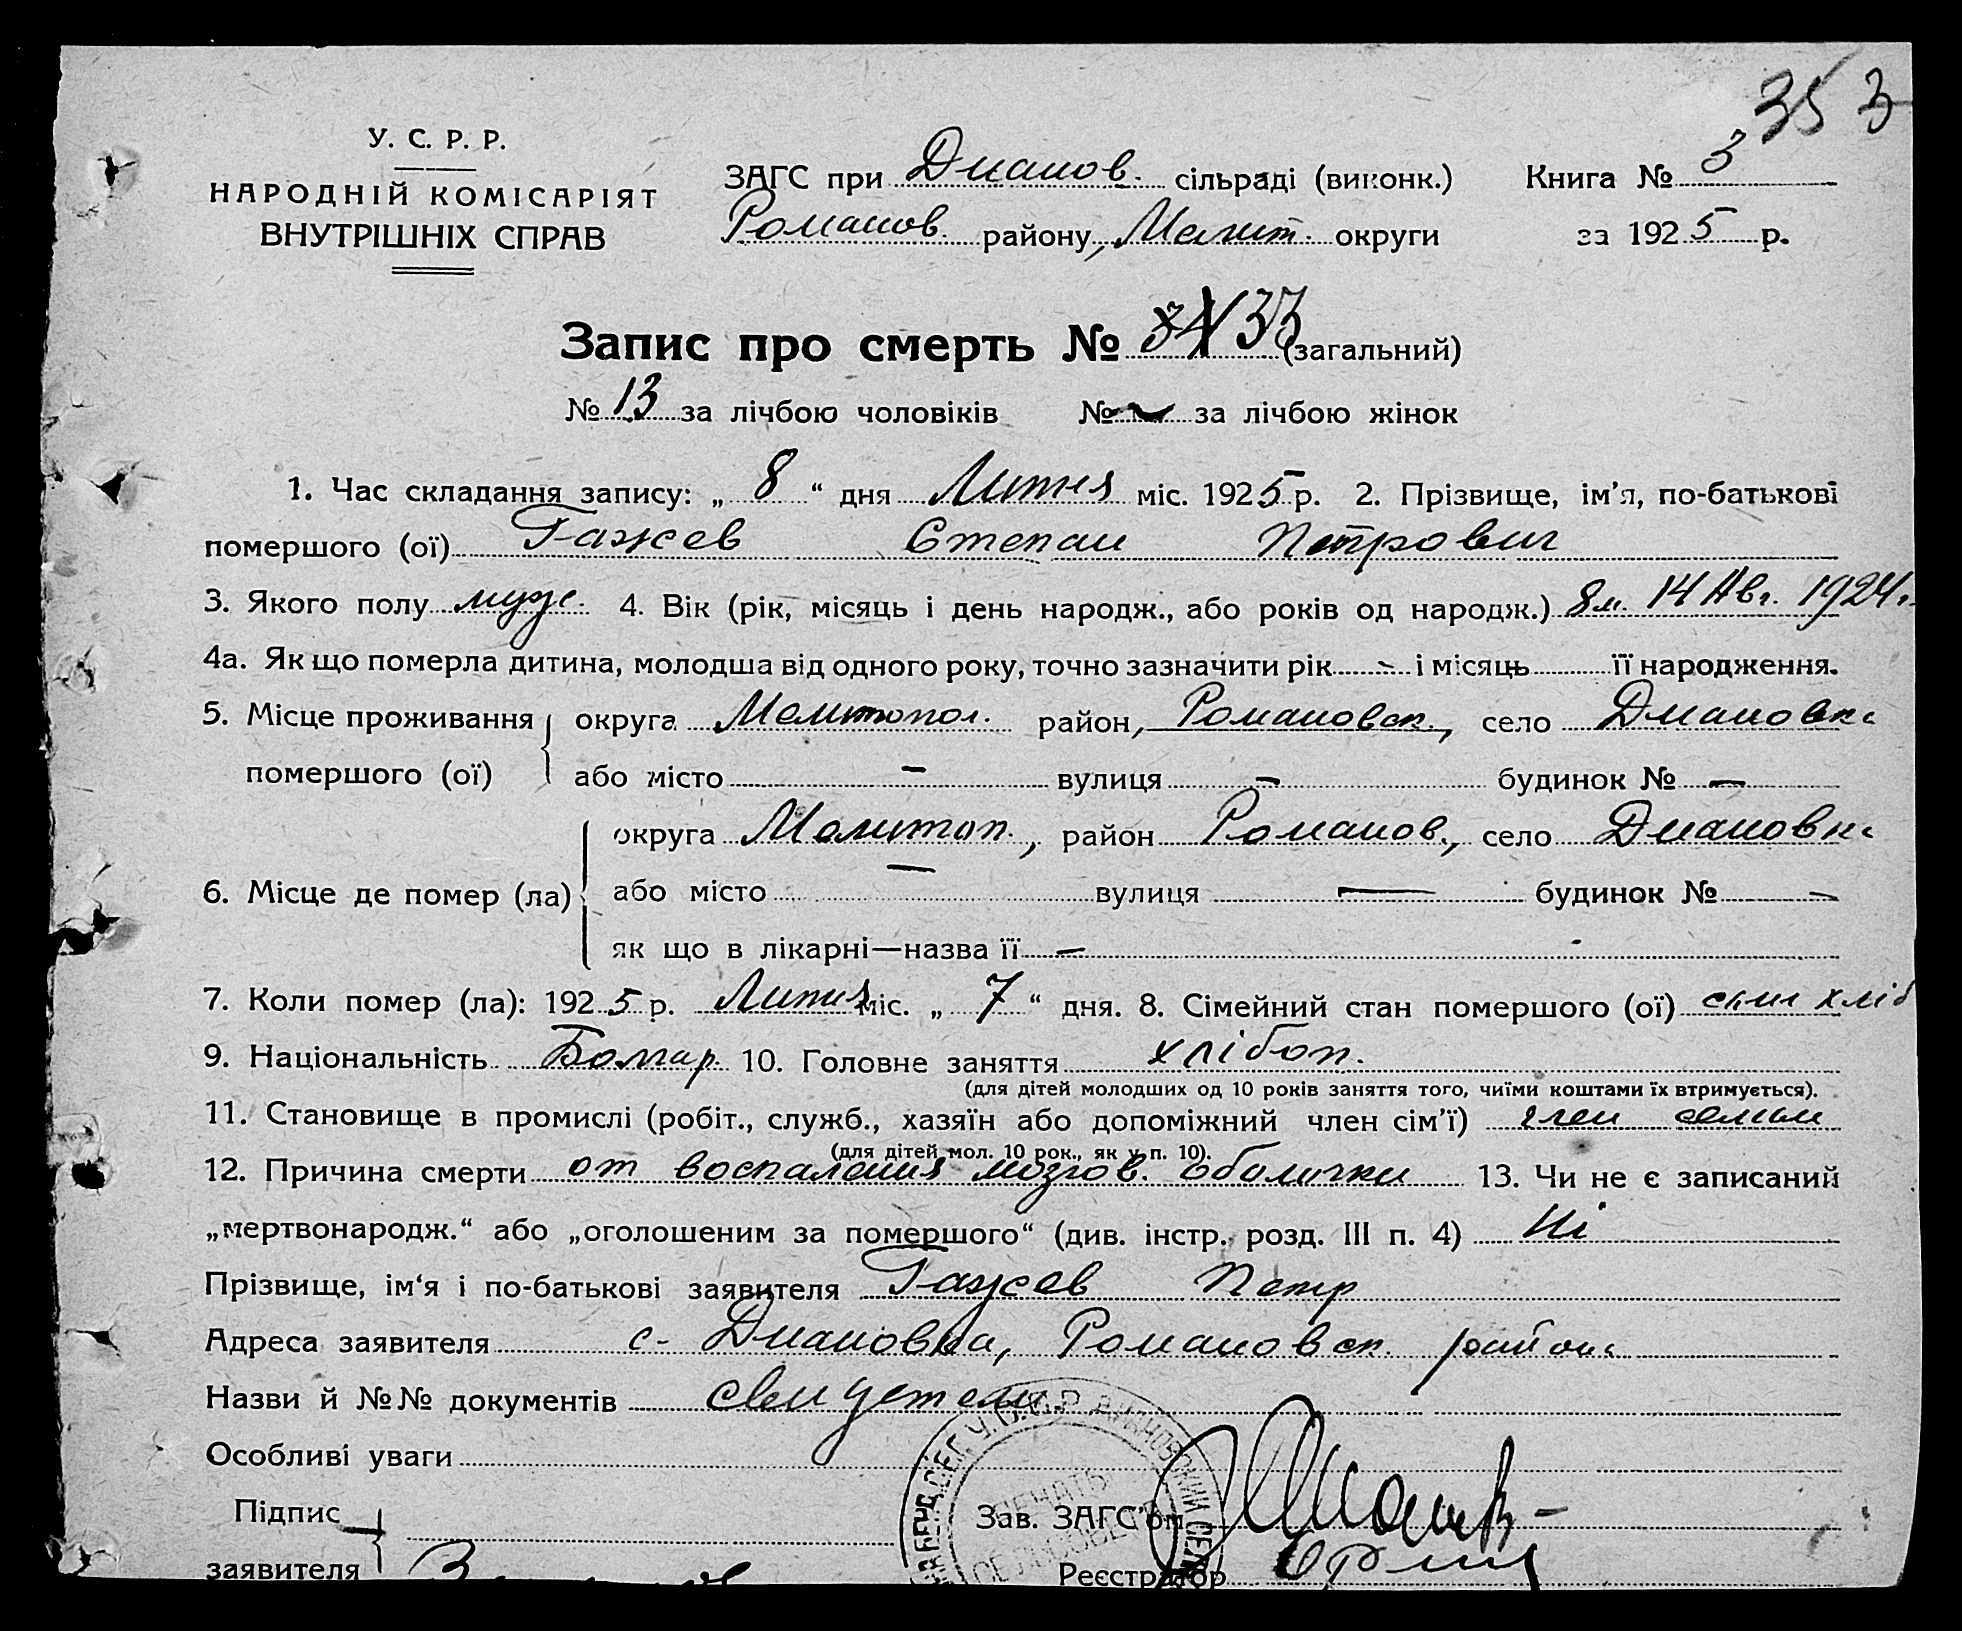 35 3
У. С. Р. Р.
НАРОДНІЙ КОМІСАРІЯТ
ВНУТРІШНІХ СПРАВ
ЗАГС при Диапов. сільраді (виконк.) Книга № 3
Романов. району, Мелит. округи за 1925 р.
Запис про смерть № 34 33 (загальний)
№ 13 за лічбою чоловіків № за лічбою жінок
1. Час складання запису: „ 8 “ дня Липня міс. 1925 р. 2. Прізвище, ім’я, по-батькові
помершого (ої) Гажев Степан Петрович
3. Якого полу муж. 4. Вік (рік, місяць і день народж., або років од народж.) 8 м. 14 Ав. 1924 г.
4а. Як що померла дитина, молодша від одного року, точно зазначити рік - і місяць її народження.
5. Місце проживання округа Мелитопол. район, Романовск., село Диановка
помершого (ої) або місто - вулиця - будинок № -
округа Мелитоп., район Романов., село Диановка
6. Місце де помер (ла) або місто — вулиця — будинок № -
як що в лікарні—назва її -
7. Коли помер (ла): 1925 р. Липня міс. „ 7 “ дня. 8. Сімейний стан помершого (ої) син хліб
9. Національність Болгар. 10. Головне заняття хлібоп.
(для дітей молодших од 10 років заняття того, чиїми коштами їх втримується).
11. Становище в промислі (робіт., служб., хазяїн або допоміжний член сім’ї) член семьи
(для дітей мол. 10 рок., як у п. 10).
12. Причина смерти от воспаления мозгов. оболочки 13. Чи не є записаний
„мертвонародж.“ або „оголошеним за помершого“ (див. інстр. розд. III п. 4) Ні
Прізвище, ім‘я і по-батькові заявителя Гажев Петр
Адреса заявителя с. Диановка, Романовск. района
Назви й №№ документів
Особливі уваги
Підпис
заявителя
Зав. ЗАГС’ом
Реєстратор